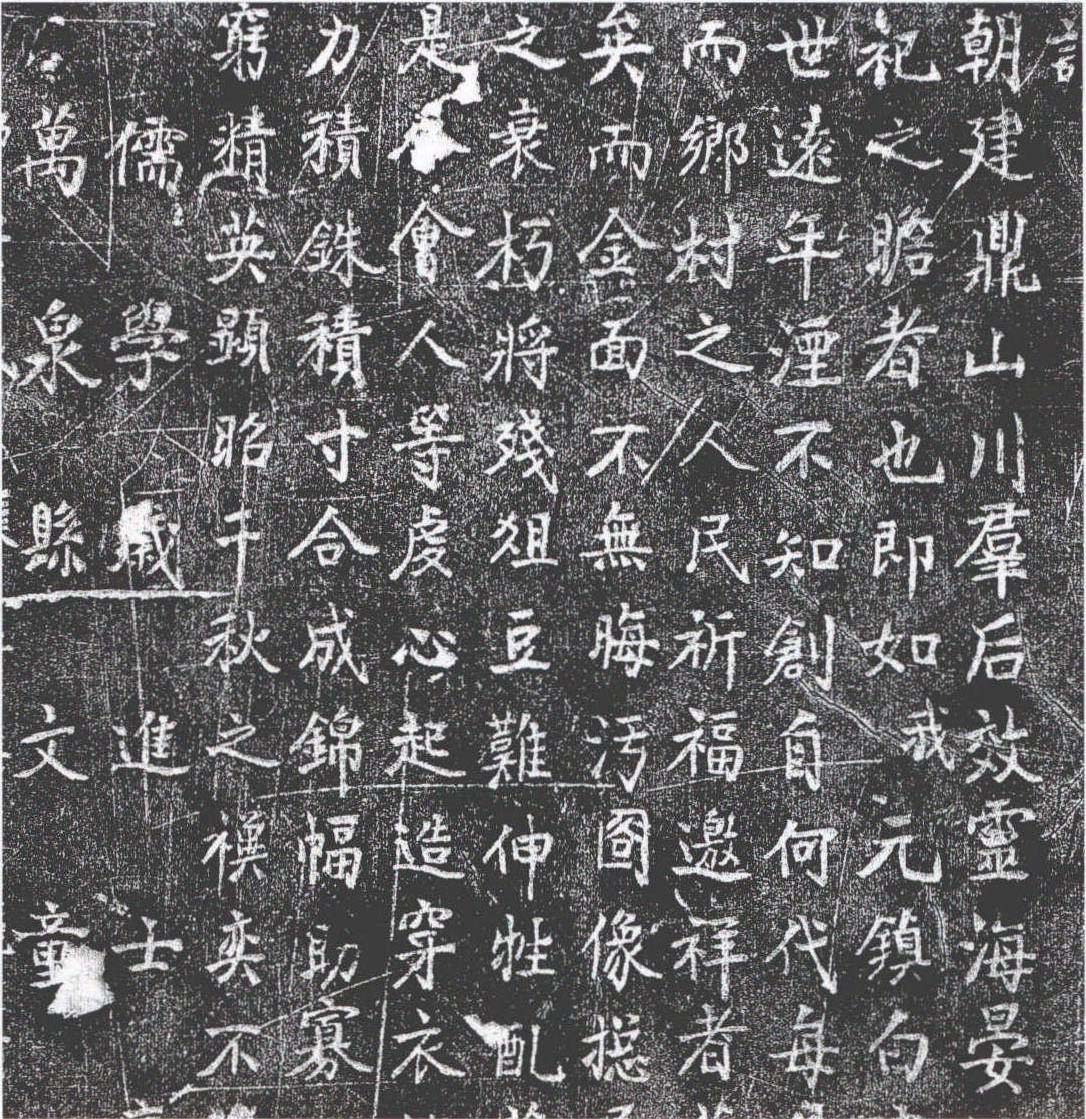 朝建鼎山川羣后效靈海晏
祀之瞻者也即如我元鎮向
世遠年湮不知創自何代每
而鄉村之人民祈福邀祥者
矣而金面不無晦污圖像摠
之衰朽將殘俎豆難伸牲
是會人等虔心起造穿衣
力積銖積寸合成錦幅助寡
窮精英顯昭千秋之禩奕不
儒學歲進士
萬泉縣文童